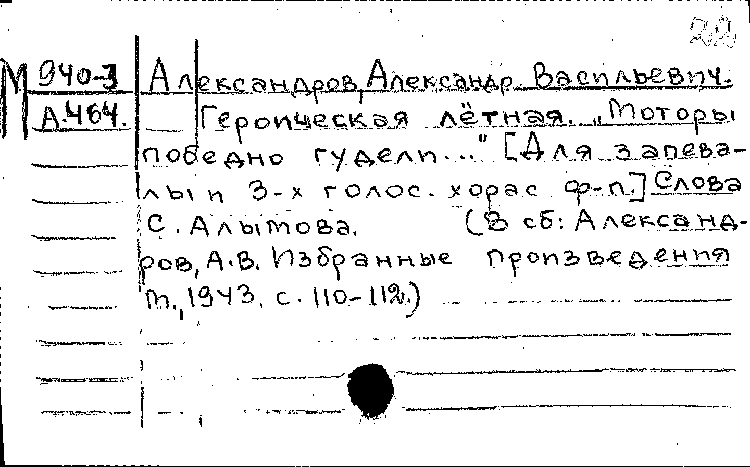 22
М 940-3 Александров, Александр Васильевич.
А.464. Героическая лётная. „Моторы
победно гудели..." [Для запева-
лы и 3-х голос. хора с ф-п.] Слова
С. Алымова. (В сб: Александ-
ров, А.В. Избранные произведения
М., 1943. с. 110-112.)